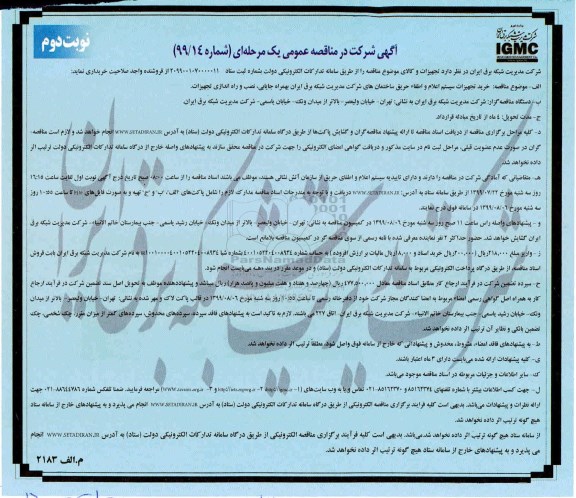 نوبت دوم
آگهی شرکت در مناقصه عمومی یک مرحله‌ای (شماره ۹۹/۱۴)
IGMC
شرکت مدیریت شبکه برق ایران در نظر دارد تجهیزات و کالای موضوع مناقصه را از طریق سامانه تدارکات الکترونیکی دولت بشماره ثبت ستاد از فروشنده واجد صلاحیت خریداری نماید:
الف - موضوع مناقصه: خرید تجهیزات سیستم اعلام و اطفاء حریق ساختمان های شرکت مدیریت شبکه برق ایران بهمراه جابایی، نصب و راه اندازی تجهیزات.
ب - دستگاه مناقصه گزار: شرکت مدیریت شبکه برق ایران به نشانی: تهران - خیابان ولیعصر- بالاتر از میدان ونک- خیابان یاسمی- شرکت مدیریت شبکه برق ایران.
ج - مدت تحویل: ۴ ماه از تاریخ مبادله قرارداد.
د- کلیه مراحل برگزاری مناقصه از دریافت اسناد مناقصه تا ارائه پیشنهاد مناقصه گران و گشایش پاکت‌ها از طریق درگاه سامانه تدارکات الکترونیکی دولت (ستاد) به آدرس WWW.SETADIRAN.IR انجام خواهد شد و لازم است مناقصه
گران در صورت عدم عضویت قبلی، مراحل ثبت نام در سایت مذکور و دریافت گواهی امضای الکترونیکی را جهت شرکت در مناقصه محقق سازند. به پیشنهادهای واصله خارج از درگاه سامانه تدارکات الکترونیکی دولت ترتیب اثر
داده نخواهد شد.
هـ- متقاضیانی که آمادگی شرکت در مناقصه را دارند و دارای تاییدیه سیستم اعلام و اطفای حریق از سازمان آتش نشانی هستند، موظف می باشند اسناد مناقصه را از ساعت ۸:۰۰ صبح تاریخ درج آگهی نوبت اول لغایت ساعت ۱۶:۱۵
روز سه شنبه مورخ ۱۳۹۹/۰۷/۲۲ از طریق سامانه ستاد به آدرس: WWW.SETADIRAN.IR دریافت و با توجه به مندرجات اسناد مناقصه مدارک لازم را شامل پاکت‌های "الف"، "ب" و "ج" تهیه و به صورت فایل‌های تا ساعت ۱۰:۵۵ روز
سه شنبه مورخ ۱۳۹۹/۰۸/۰۶ در سامانه فوق درج نمایند.
و - پیشنهادهای واصله راس ساعت ۱۱ صبح روز سه شنبه مورخ ۱۳۹۹/۰۸/۰۶ در کمیسیون مناقصه به نشانی: تهران - خیابان ولیعصر- بالاتر از میدان ونک- خیابان رشید یاسمی- جنب بیمارستان خاتم الانبیاء- شرکت مدیریت شبکه برق
ایران گشایش خواهد شد. حضور حداکثر ۲ نفر نماینده معرفی شده با نامه رسمی از سوی مناقصه گر در کمیسیون مناقصه بلامانع است.
ز - واریز مبلغ ریال ریال خرید اسناد و ریال مالیات بر ارزش افزوده) به حساب شماره به نام شرکت مدیریت شبکه برق ایران بابت فروش
اسناد مناقصه از طریق درگاه پرداخت الکترونیکی مربوط به سامانه تدارکات الکترونیکی دولت (ستاد) و در موعد مقرر در بند "هـ" می بایست انجام شود.
ح - سپرده تضمین شرکت در فرآیند ارجاع کار مطابق اسناد مناقصه معادل ریال (چهارصد و هفتاد و هفت میلیون و پانصد هزار) ریال میباشد و پیشنهاددهنده موظف به تحویل اصل سند تضمین شرکت در فرآیند ارجاع
کار به همراه اصل گواهی رسمی امضاء مربوط به امضا کنندگان مجاز شرکت خود از دفترخانه رسمی تا ساعت ۱۰:۵۵ روز سه شنبه مورخ ۱۳۹۹/۰۸/۰۶ در قالب پاکت لاک و مهر شده به نشانی: تهران- خیابان ولیعصر- بالاتر از میدان
ونک- خیابان رشید یاسمی- جنب بیمارستان خاتم الانبیاء- شرکت مدیریت شبکه برق ایران- اتاق ۲۲۷ می باشند. لازم به تاکید است به پیشنهادهای فاقد سپرده، سپرده‌های مخدوش، سپرده‌های کمتر از میزان مقرر، چک شخصی، چک
تضمین بانکی و نظایر آن ترتیب اثر داده نخواهد شد.
ط- به پیشنهادهای فاقد امضاء، مشروط، مخدوش و پیشنهاداتی که خارج از سامانه فوق واصل شود، مطلقاً ترتیب اثر داده نخواهد شد.
ی- کلیه پیشنهادات ارائه شده می‌بایست دارای ۳ ماه اعتبار باشند.
ک- سایر اطلاعات و جزئیات مربوطه در اسناد مناقصه موجود می‌باشد.
ل- جهت کسب اطلاعات بیشتر با شماره تلفنهای ۸۵۱۶۲۳۷۴ و ۰۲۱-۸۵۱۶۲۳۷۰ تماس و یا به وب سایت‌های مراجعه فرمایید. ضمنا تلفکس شماره ۰۲۱-۸۸۶۴۴۷۸۶ جهت
ارائه نظرات و پیشنهادات می‌باشد. بدیهی است کلیه فرآیند برگزاری مناقصه الکترونیکی از طریق درگاه سامانه تدارکات الکترونیکی دولت (ستاد) به آدرس WWW.SETADIRAN.IR انجام می پذیرد و به پیشنهادهای خارج از سامانه ستاد
هیچ گونه ترتیب اثر داده نخواهد شد.
از سامانه ستاد هیچ گونه ترتیب اثر داده نخواهد شد.می‌باشد. بدیهی است کلیه فرآیند برگزاری مناقصه الکترونیکی از طریق درگاه سامانه تدارکات الکترونیکی دولت (ستاد) به آدرس WWW.SETADIRAN.IR انجام
می پذیرد و به پیشنهادهای خارج از سامانه ستاد هیچ گونه ترتیب اثر داده نخواهد شد.
م.الف ۲۱۸۳